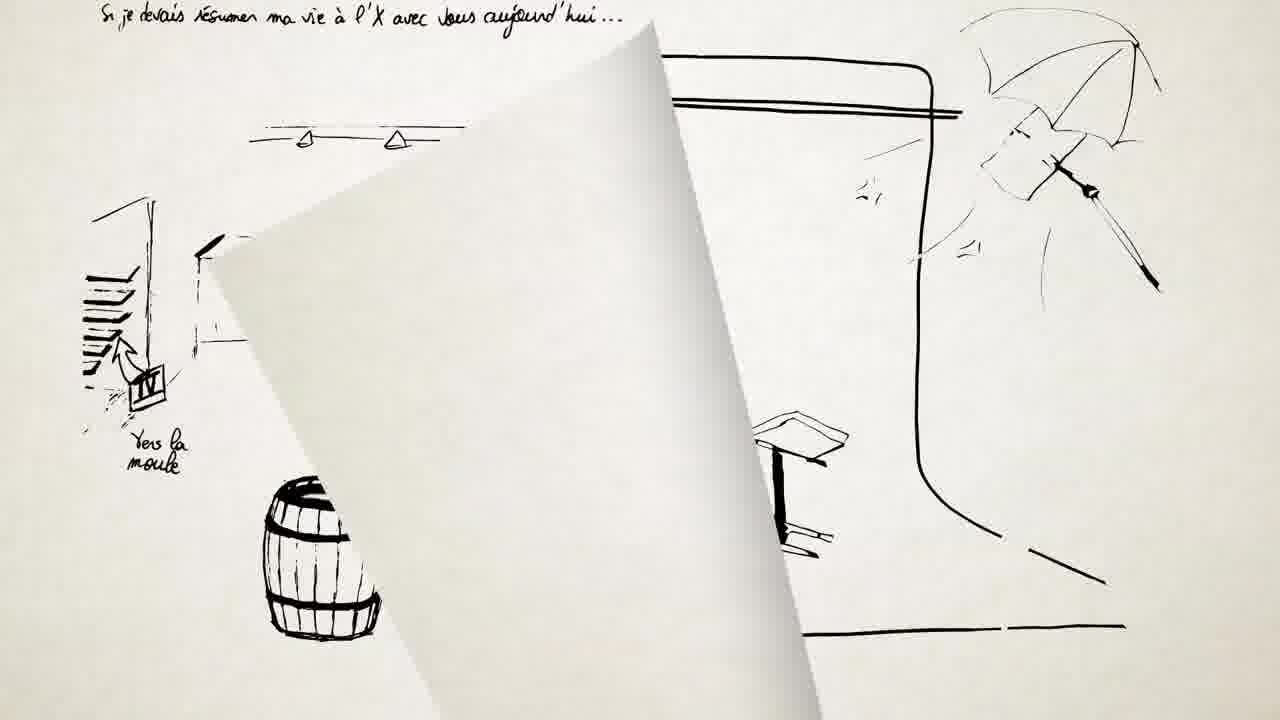 Si je devais résumer ma vie à l'X avec vous aujourd'hui...
IV
Vers la
moule